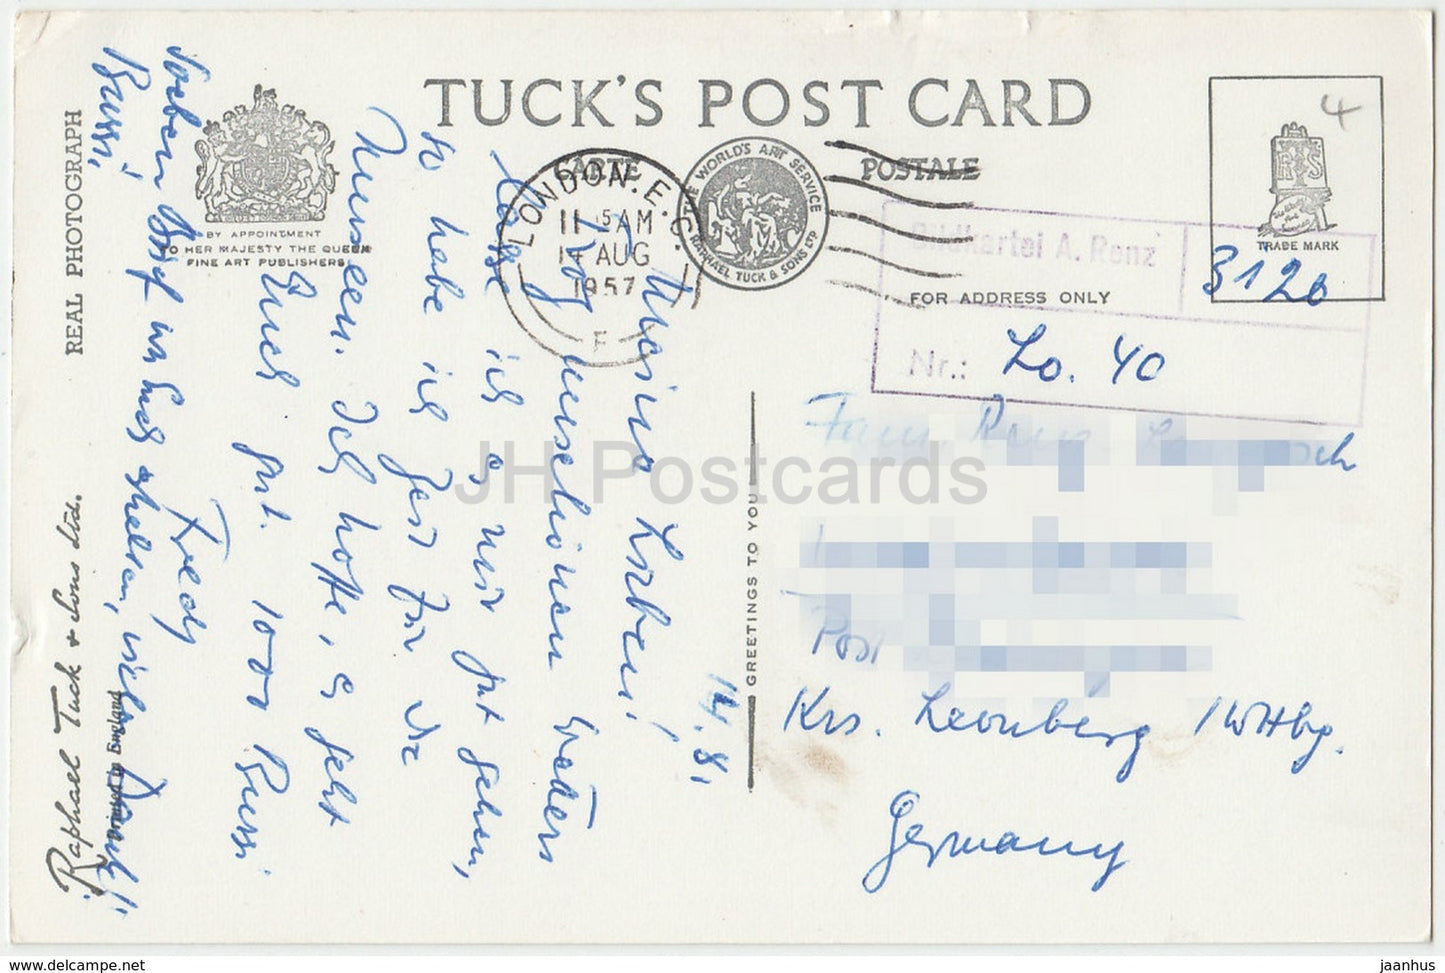 TUCK'S POST CARD
CARTE POSTALE
REAL PHOTOGRAPH
BY APPOINTMENT
TO HER MAJESTY THE QUEEN
FINE ART PUBLISHERS
THE WORLD'S ART SERVICE
RAPHAEL TUCK & SONS LTD
LONDON. E.C.
11 15 AM
14 AUG
1957
F
4
TRADE MARK
Bildkartei A. Renz
3120
FOR ADDRESS ONLY
Nr.: Lo. 40
14.8.
Meine Lieben!
Trotz
lasse ich es mir gut gehen,
so habe ich Zeit für die
Museen. Ich hoffe, es geht
Euch gut. 1000 Bussi
Fredy
Soeben Brief von Euch erhalten, vielen Dank!
Bussi,
JH Postcards
GREETINGS TO YOU
Fam. Renz
Post
Krs. Leonberg / Wttbg.
Germany
Raphael Tuck & Sons Ltd.
Printed in England
www.delcampe.net
jaanhus